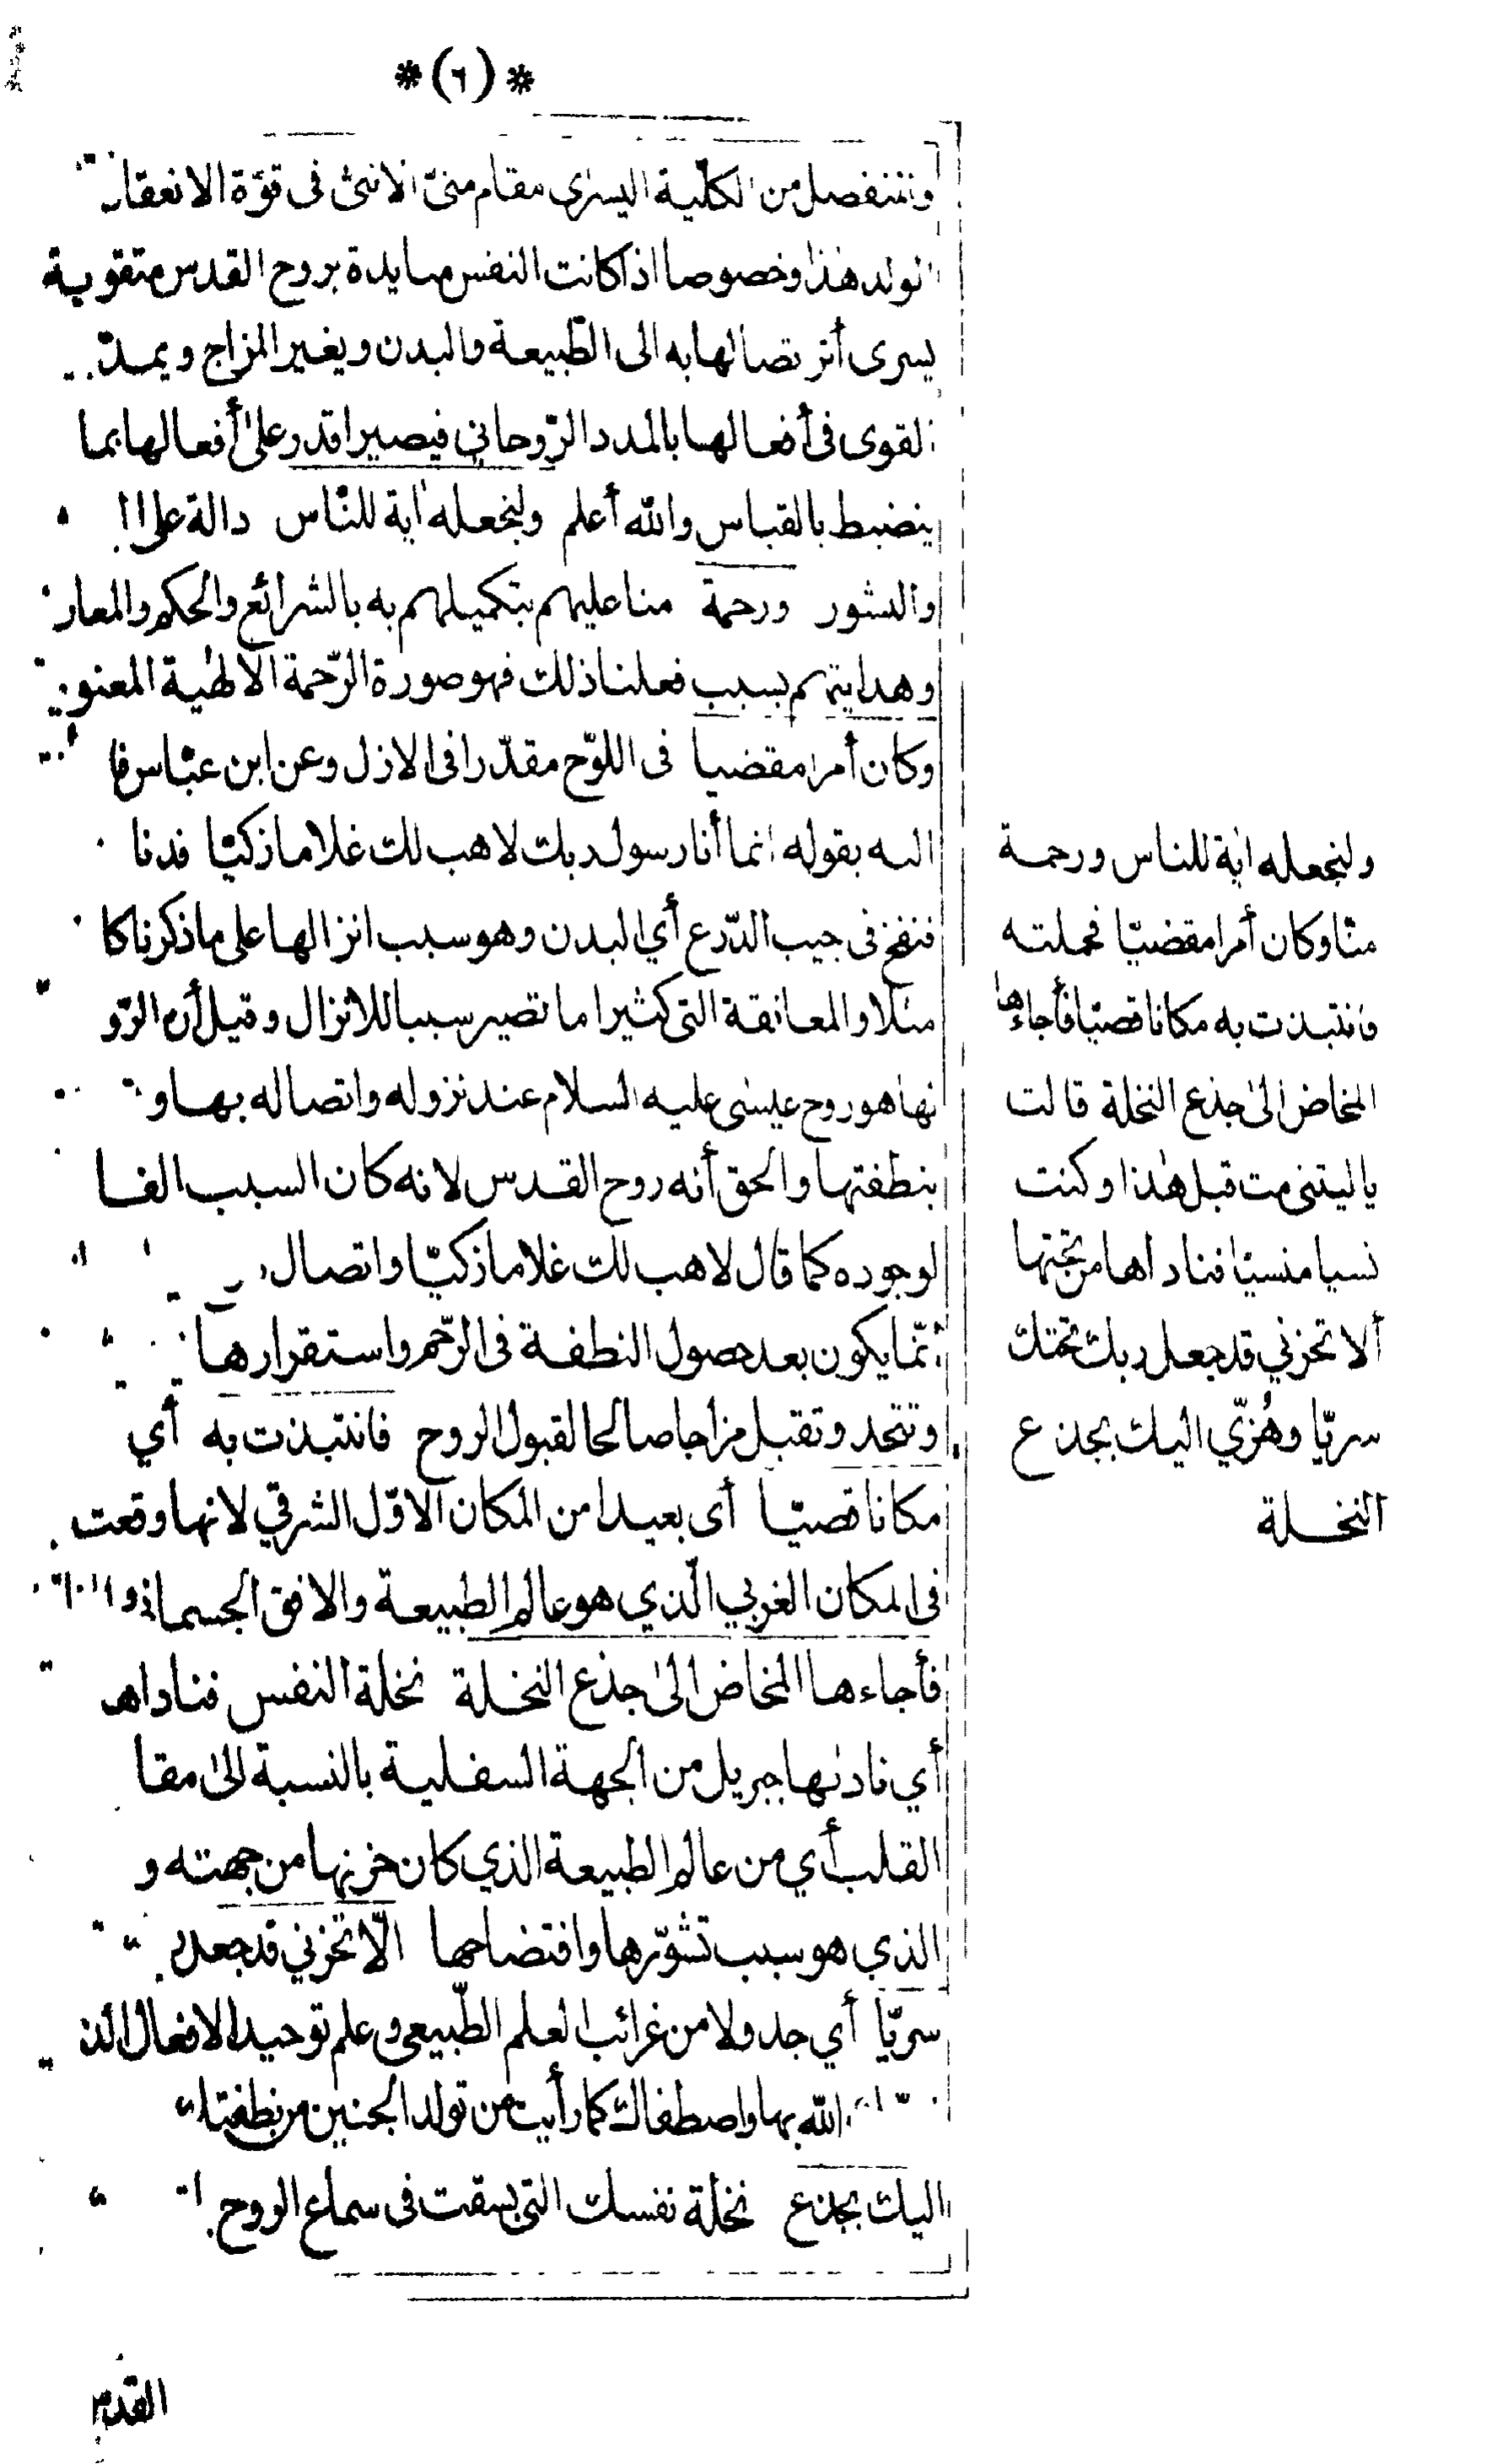 *(٦)*
وتنفصل من الكلية اليسرى مقام منىّ الانثى فى قوّة الانعقاد
هذا وخصوصا اذا كانت النفس مـايدة بروح القدس متقوية
يسرى أثر تصالها به الى الطّبيعة والبدن ويغير المزاج ويمدّ
القوى فى أفعالها بالمدد الرّوحاني فيصير اقدر على أفعالها بما
ينضبط بالقياس والله أعلم ولنجعله آية للنّاس دالة على
والنشور ورحمة منا عليهم بتكميلهم به بالشرائع والحكم
وهدايتهم بسبب فعلنا ذلك فهو صورة الرّحمة الالهٰية
وكان أمرا مقضيا فى اللوّح مقدّرا فى الازل وعن ابن عبّاس
اليه بقوله انما أنا رسول ربك لاهب لك غلاما زكيّا فدنا
فنفخ فى جيب الدّرع أي البدن وهو سبب انزالها على ما ذكرنا كا
مثلا والمعانقة التى كثيرا ما تصير سببا للانزال وقيل أن الرّو
هو روح عيسٰى عليه السلام عند نزوله واتصاله بها و
بنطفتها والحق أنه روح القدس لانه كان السبب الفا
لوجوده كما قال لاهب لك غلاما زكيّا واتصال
انّما يكون بعد حصول النطفة فى الرّحم واستقرارها
وتتحد وتقبل مزاجا صالحا لقبول الروح فانتبذت به أي
مكانا قصيّا أى بعيدا من المكان الاوّل الشرقي لانها وقعت
فى المكان الغربي الّذي هو عالم الطبيعة والافق الجسماني
فأجاءها المخاض الىٰ جذع النخلة نخلة النفس فناداها
أي نادٰيها جبريل من الجهة السفلية بالنسبة الىٰ مقا
القلب أي من عالم الطبيعة الذي كان حزنها من جهته و
الذي هو سبب تشوّرها وافتضاحها الّا تحزني قد جعل
سريّا أي جدولا من غرائب العلم الطّبيعى وعلم توحيد الافعال
الله بها واصطفاك كما رأيت من تولد الجنين من نطفتك
اليك بجذع نخلة نفسك التى بسقت فى سماء الروح
القدس
ولنجعله اٰية للناس ورحمة
منّا وكان أمرا مقضيّا فحملته
فانتبذت به مكانا قصيّا فأجاءها
المخاض الىٰ جذع النخلة قالت
ياليتنى مت قبل هٰذا وكنت
نسيا منسيّا فناداها من تحتها
ألا تحزني قد جعل ربك تحتك
سريّا وهُزّي اليك بجذع
النخلة